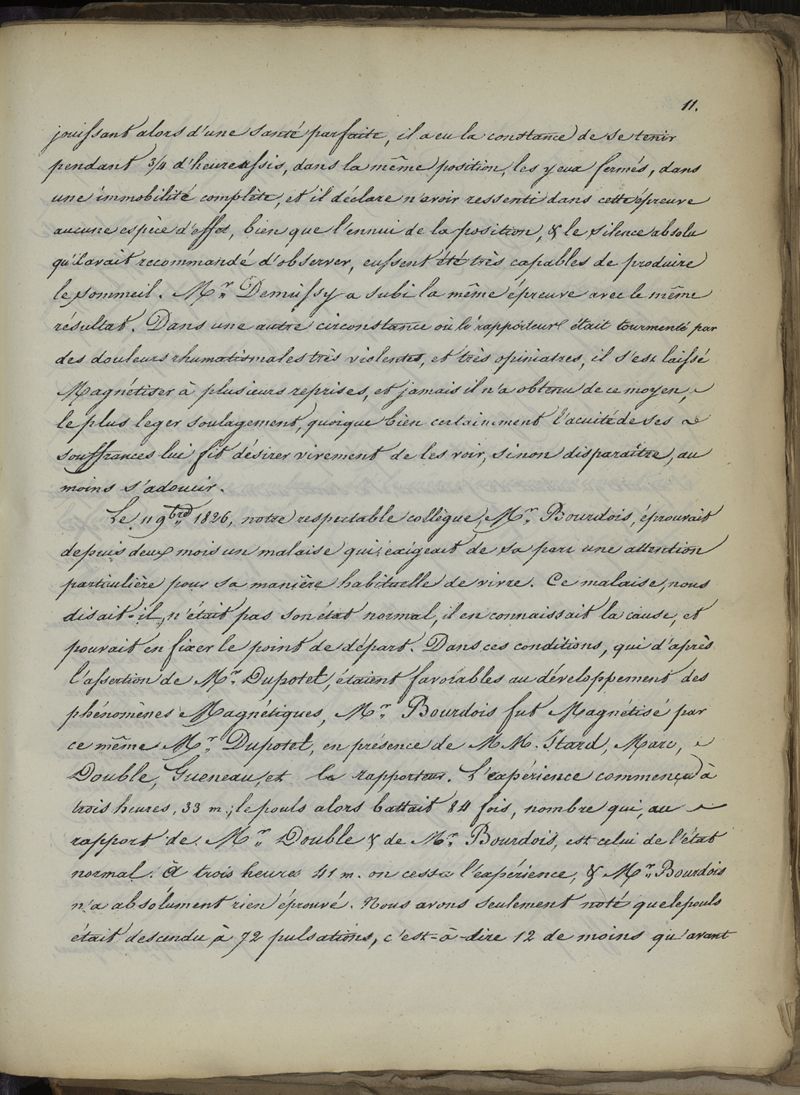 11.
jouissant alors d'une santé parfaite, il a eu la constance de se tenir
pendant 3/4 d'heure assis, dans la même position, les yeux fermés, dans
une immobilité complète, et il déclare n'avoir ressenti dans cette épreuve
aucune espèce d'effet, bien que l'ennui de la position, & le silence absolu
qu'il avait recommandé d'observer, eussent été très capables de produire
le sommeil. Mr. Demussy a subi la même épreuve avec le même
résultat. Dans une autre circonstance où le rapporteur était tourmenté par
des douleurs rhumatismales très violentes, et très opiniatres, il s'est laissé
Magnétiser à plusieurs reprises, et jamais il n'a obtenu de ce moyen,
le plus leger soulagement, quoique bien certainement l'acuité de ses
souffrances lui fit désirer vivement de les voir, sinon disparaître, au
moins s'adoucir.
Le 11 9bre 1836, notre respectable collègue, Mr. Bourdois, éprouvait
depuis deux mois un malaise qui exigeait de sa part une attention
particulière pour sa manière habituelle de vivre. Ce malaise, nous
disait-il, n'était pas son état normal, il en connaissait la cause, et
pouvait en fixer le point de départ. Dans ces conditions, qui d'après
l'assertion de Mr. Dupotet, étaient favorables au développement des
phénomènes Magnétiques, Mr. Bourdois fut Magnétisé par
ce même Mr. Dupotet, en présence de M.M. Itard, Marc,
Double, Gueneau, et le rapporteur. L'expérience commença à
trois heures, 33 m.; le pouls alors battait 84 fois, nombre qui, au
rapport de Mr. Double & de Mr. Bourdois, est celui de l'état
normal. À trois heures 41 m. on cessa l'expérience, & Mr. Bourdois
n'a absolument rien éprouvé. Nous avons seulement noté que le pouls
était descendu à 72 pulsations, c'est-à-dire 12 de moins qu'avant